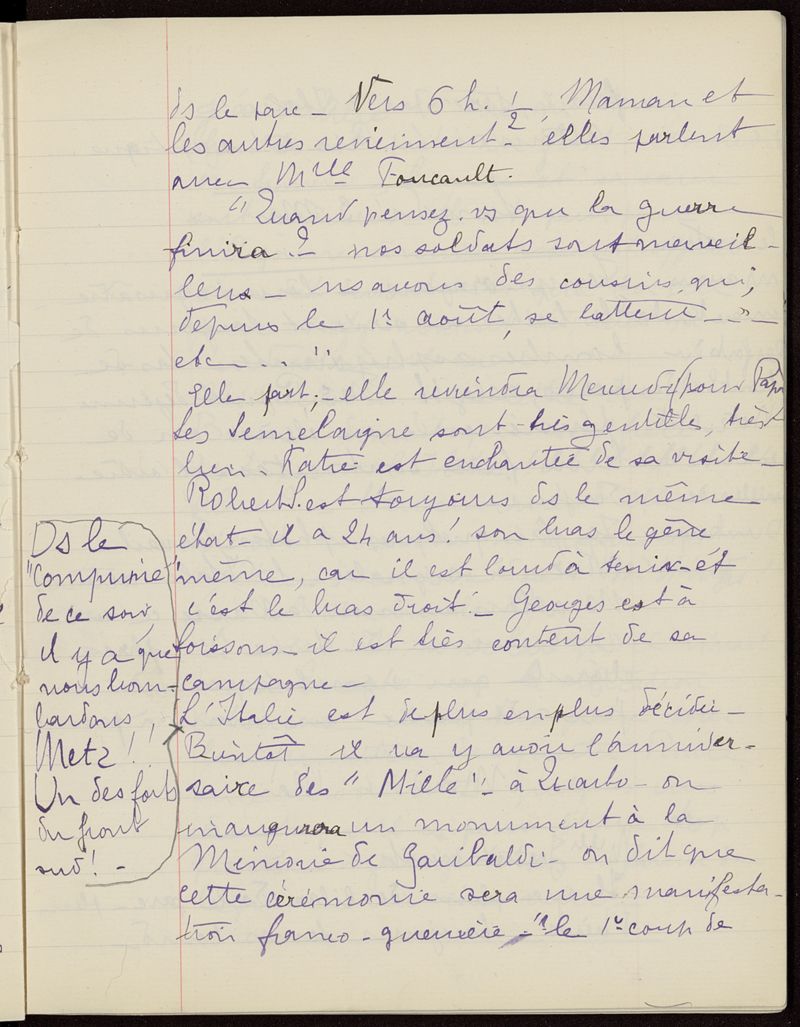 ds le parc – Vers 6 h. 1/2, Maman et
les autres reviennent – elles parlent
avec Mlle Foucault.
"Quand pensez-vs que la guerre
finira ? – nos soldats sont merveil-
leux – ns avons des cousins qui,
depuis le 1r août, se battent – " –
etc . . "
Elle part ; – elle reviendra Mercredi pour Papa
Les Semelaigne sont très gentilles, très
bien. Katie est enchantée de sa visite –
Robert S. est toujours ds le même
état – il a 24 ans ! son bras le gêne
même, car il est lourd à tenir – et
c'est le bras droit ! – Georges est à
Soissons – il est très content de sa
campagne –
L'Italie est de plus en plus décidée –
Bientôt il va y avoir l'anniver-
saire des "Mille" – à Quarto – on
inaugurera un monument à la
Mémoire de Garibaldi – on dit que
cette cérémonie sera une manifesta-
tion franco-guerrière – "le 1r coup de
Ds le
"Comprimé"
de ce soir,
il y a que
nous bom-
bardons
Metz ! !
Un des forts
du front
sud ! –